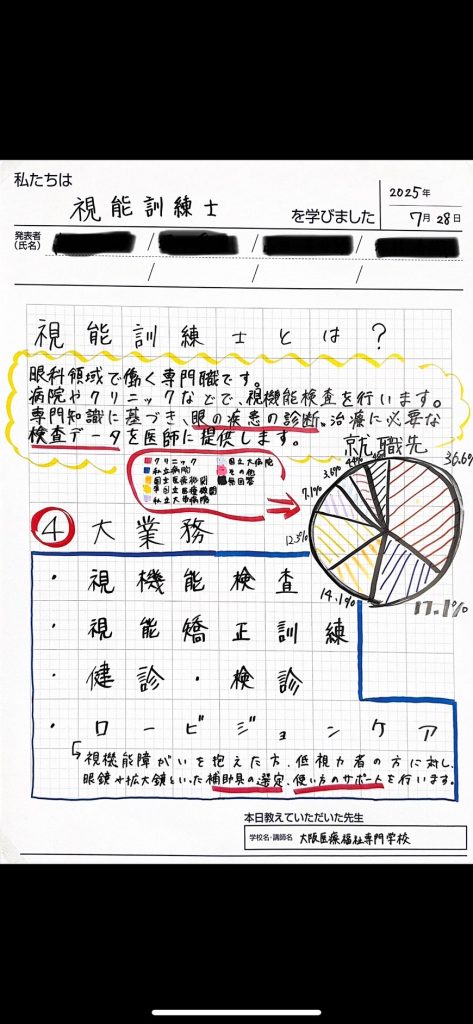 私たちは
視能訓練士
を学びました
2025年
7月28日
発表者
(氏名)
視能訓練士とは?
眼科領域で働く専門職です。
病院やクリニックなどで、視機能検査を行います。
専門知識に基づき、眼の疾患の診断、治療に必要な
検査データを医師に提供します。
就職先
クリニック
私立病院
国立医療機関
準国立医療機関
私立大病院
国立大病院
その他
無回答
36.6%
17.1%
14.1%
12.5%
7.1%
3.6%
④大業務
・視機能検査
・視能矯正訓練
・健診・検診
・ロービジョンケア
視機能障がいを抱えた方、低視力者の方に対し、
眼鏡や拡大鏡といった補助具の選定、使い方のサポートを行います。
本日教えていただいた先生
学校名・講師名 大阪医療福祉専門学校